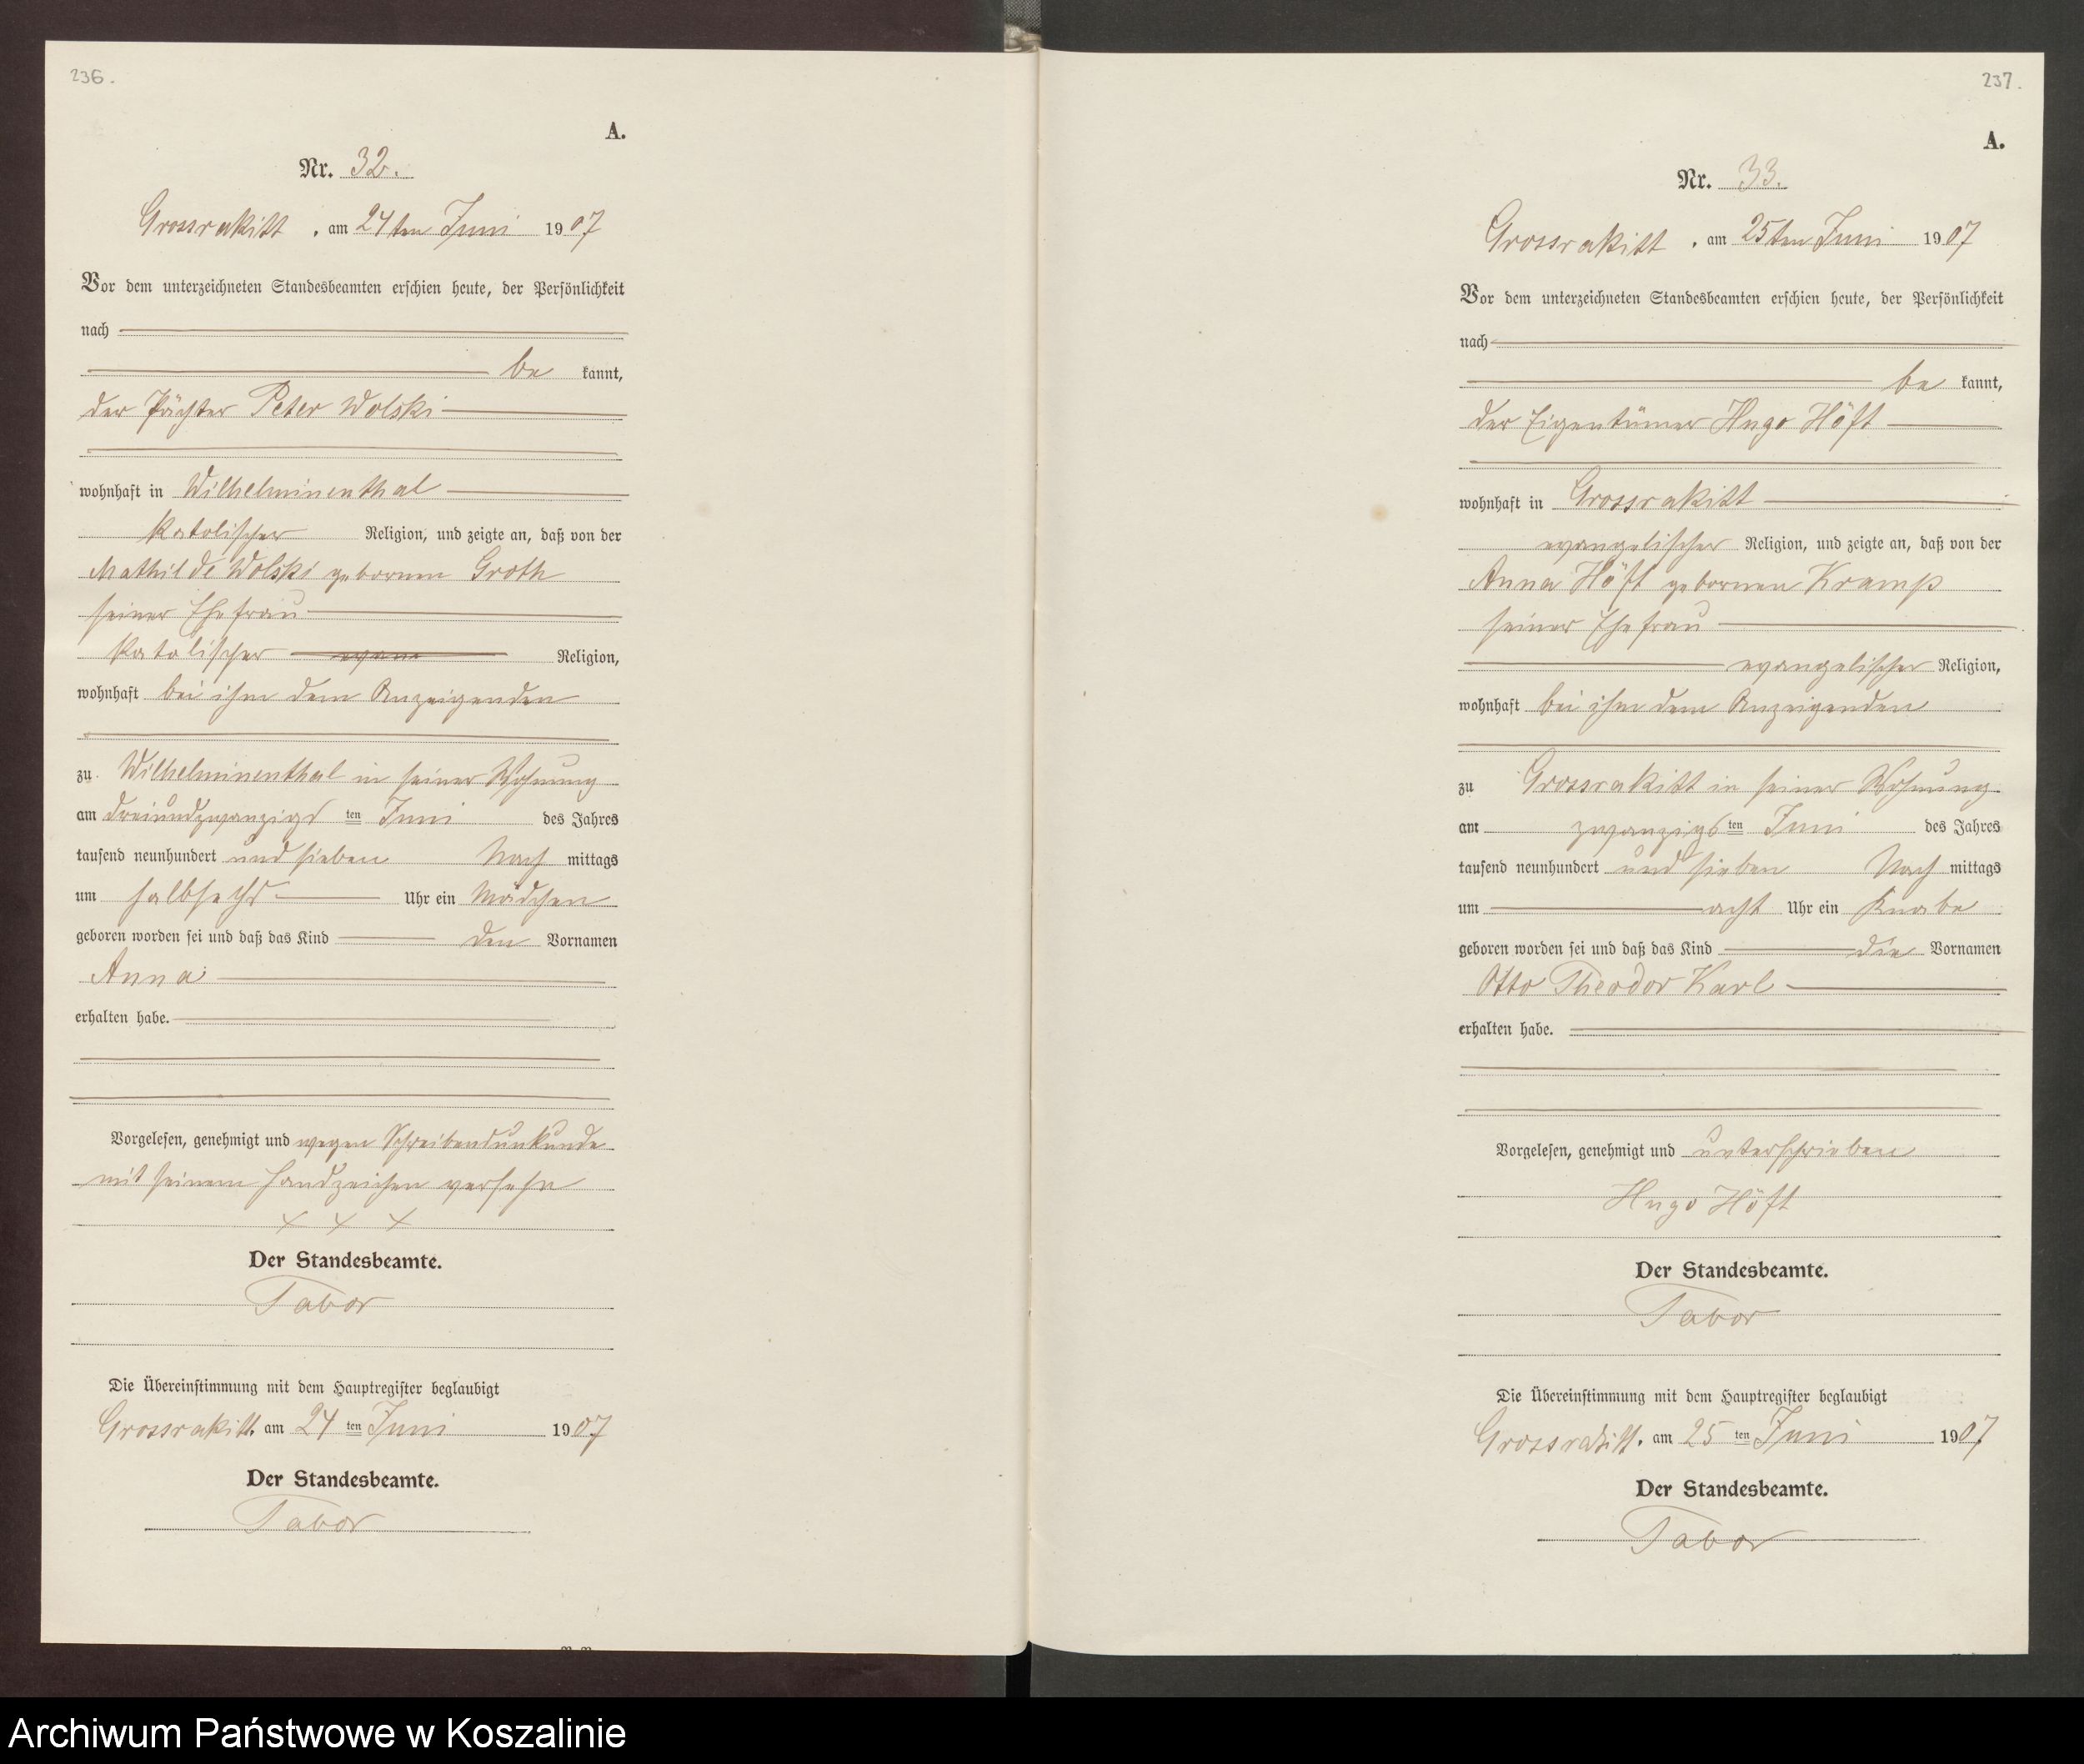 236.
A.
Nr. 32.
Grossrakitt, am 24ten Juni 1907
Vor dem unterzeichneten Standesbeamten erschien heute, der Persönlichkeit
nach
be kannt,
der Pächter Peter Wolski
wohnhaft in Wilhelminenthal
katolischer Religion, und zeigte an, daß von der
Mathilde Wolski gebornen Groth
seiner Ehefrau
katolischer Religion,
wohnhaft bei ihm dem Anzeigenden
zu Wilhelminenthal in seiner Wohnung
am dreiundzwanzigs ten Juni des Jahres
tausend neunhundert und sieben Nach mittags
um halbsechs Uhr ein Mädchen
geboren worden sei und daß das Kind den Vornamen
Anna
erhalten habe.
Vorgelesen, genehmigt und wegen Schreibensunkunde
mit seinem Handzeichen versehn
x x x
Der Standesbeamte.
Tabor
Die Übereinstimmung mit dem Hauptregister beglaubigt
Grossrakitt, am 24 ten Juni 1907
Der Standesbeamte.
Tabor
237.
A.
Nr. 33.
Grossrakitt, am 25ten Juni 1907
Vor dem unterzeichneten Standesbeamten erschien heute, der Persönlichkeit
nach
be kannt,
der Eigentümer Hugo Höft
wohnhaft in Grossrakitt
evangelischer Religion, und zeigte an, daß von der
Anna Höft gebornen Kramp
seiner Ehefrau
evangelischer Religion,
wohnhaft bei ihm dem Anzeigenden
zu Grossrakitt in seiner Wohnung
am zwanzigs ten Juni des Jahres
tausend neunhundert und sieben Nach mittags
um acht Uhr ein Knabe
geboren worden sei und daß das Kind die Vornamen
Otto Theodor Karl
erhalten habe.
Vorgelesen, genehmigt und unterschrieben
Hugo Höft
Der Standesbeamte.
Tabor
Die Übereinstimmung mit dem Hauptregister beglaubigt
Grossrakitt, am 25 ten Juni 1907
Der Standesbeamte.
Tabor
Archiwum Państwowe w Koszalinie